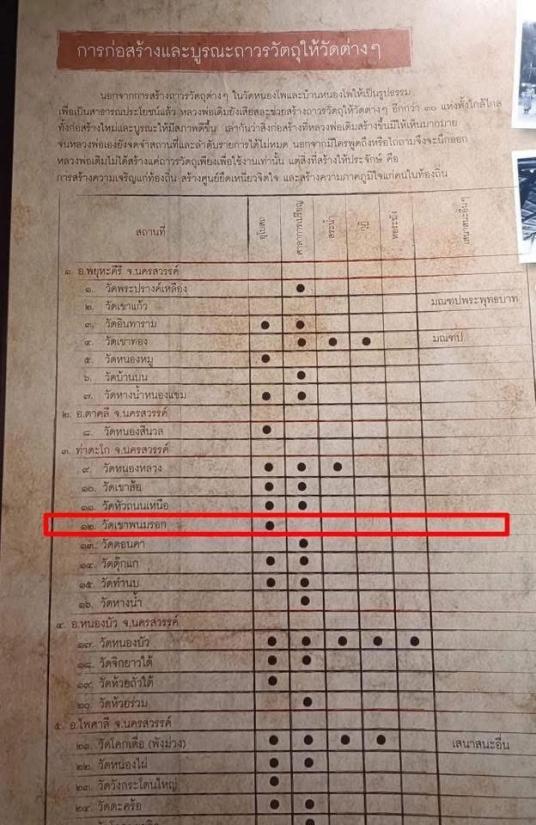 การก่อสร้างและบูรณะถาวรวัตถุให้วัดต่างๆ
นอกจากการสร้างถาวรวัตถุต่างๆ ในวัดหนองโพและบ้านหนองโพให้เป็นรูปธรรม
เพื่อเป็นสาธารณประโยชน์แล้ว หลวงพ่อเดิมยังเสียสละช่วยสร้างถาวรวัตถุให้วัดต่างๆ อีกกว่า ๓๐ แห่งทั้งใกล้ไกล
ทั้งก่อสร้างใหม่และบูรณะให้มีสภาพดีขึ้น เล่ากันว่าสิ่งก่อสร้างที่หลวงพ่อเดิมสร้างขึ้นมีให้เห็นมากมาย
จนหลวงพ่อเองยังจดจำสถานที่และลำดับรายการได้ไม่หมด นอกจากมีใครพูดถึงหรือไถ่ถามจึงจะนึกออก
หลวงพ่อเดิมไม่ได้สร้างแค่ถาวรวัตถุเพียงเพื่อใช้งานเท่านั้น แต่สิ่งที่สร้างให้ประจักษ์ คือ
การสร้างความเจริญแก่ท้องถิ่น สร้างศูนย์ยึดเหนี่ยวจิตใจ และสร้างความภาคภูมิใจแก่คนในท้องถิ่น
สถานที่ อุโบสถ ศาลาการเปรียญ สระน้ำ กุฏิ หอระฆัง เสนาสนะอื่นๆ
๑. อ.พยุหะคีรี จ.นครสวรรค์
๑. วัดพระปรางค์เหลือง ●
๒. วัดเขาแก้ว มณฑปพระพุทธบาท
๓. วัดอินทาราม ● ●
๔. วัดเขาทอง ● ● ● มณฑป
๕. วัดหนองหมู ●
๖. วัดบ้านบน ●
๗. วัดหางน้ำหนองแขม ● ●
๒. อ.ตาคลี จ.นครสวรรค์
๘. วัดหนองสีนวล ●
๓. ท่าตะโก จ.นครสวรรค์
๙. วัดหนองหลวง ● ● ●
๑๐. วัดเขาล้อ ● ●
๑๑. วัดหัวถนนเหนือ ● ●
๑๒. วัดเขาพนมรอก ●
๑๓. วัดดอนคา ●
๑๔. วัดตุ๊กแก ● ●
๑๕. วัดทำนบ ● ●
๑๖. วัดหางน้ำ ●
๔. อ.หนองบัว จ.นครสวรรค์
๑๗. วัดหนองบัว ● ● ● ● ●
๑๘. วัดจิกยาวใต้ ● ●
๑๙. วัดห้วยถั่วใต้ ●
๒๐. วัดห้วยร่วม ●
๕. อ.ไพศาลี จ.นครสวรรค์
๒๑. วัดโคกเดื่อ (พังม่วง) ● ● ● ● เสนาสนะอื่น
๒๒. วัดหนองไผ่ ● ●
๒๓. วัดวังกระโดนใหญ่ ●
๒๔. วัดตะคร้อ ● ●